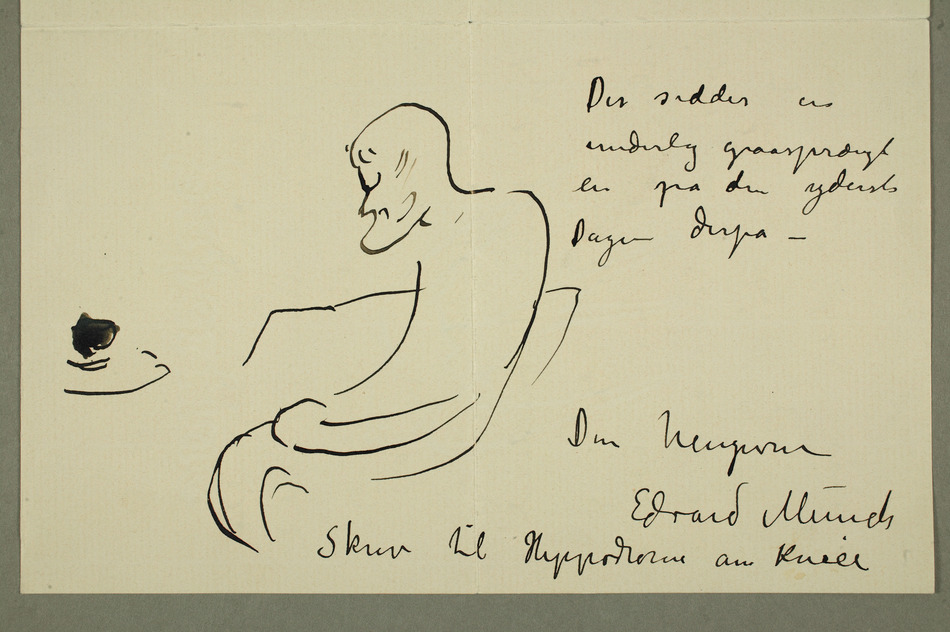 Der sidder en
underlig graasprængt
en på den yderste
Dagen derpa —
Din hengivne
Edvard Munch
Skriv til Hyppodrom am Knie